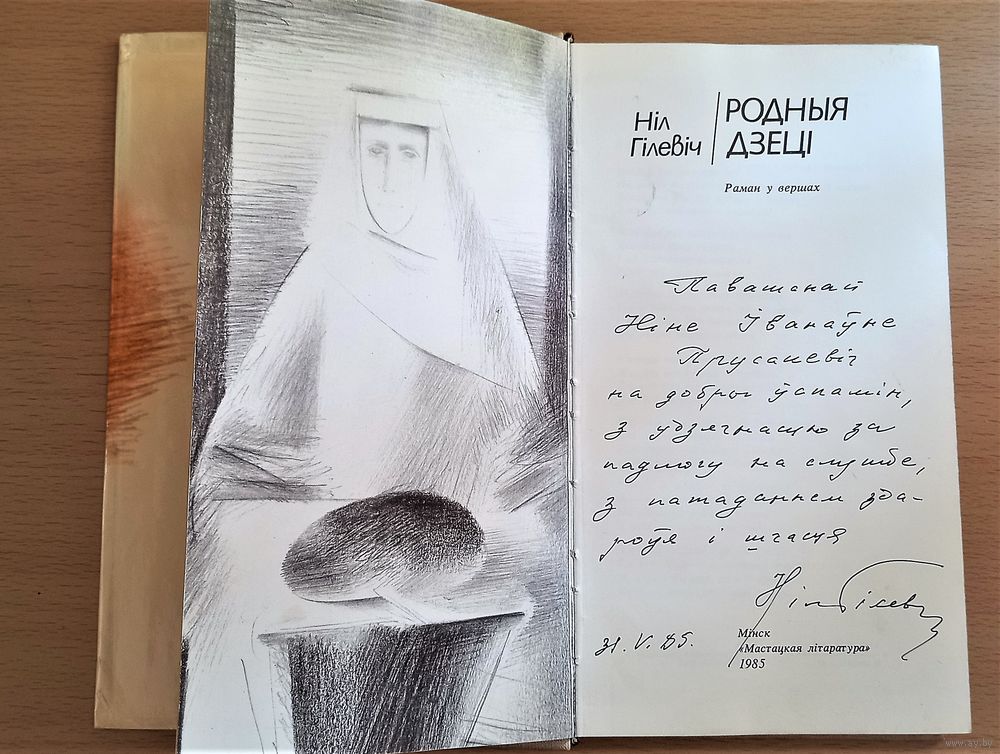 Ніл
Гілевіч
РОДНЫЯ
ДЗЕЦІ
Раман у вершах
Паважанай
Ніне Іванаўне
Прусакевіч
на добры ўспамін,
з удзячнасцю за
падмогу на службе,
з пажаданнем зда-
роўя і шчасця
Ніл Гілевіч
31.V.85.
Мінск
«Мастацкая літаратура»
1985
www.ay.by